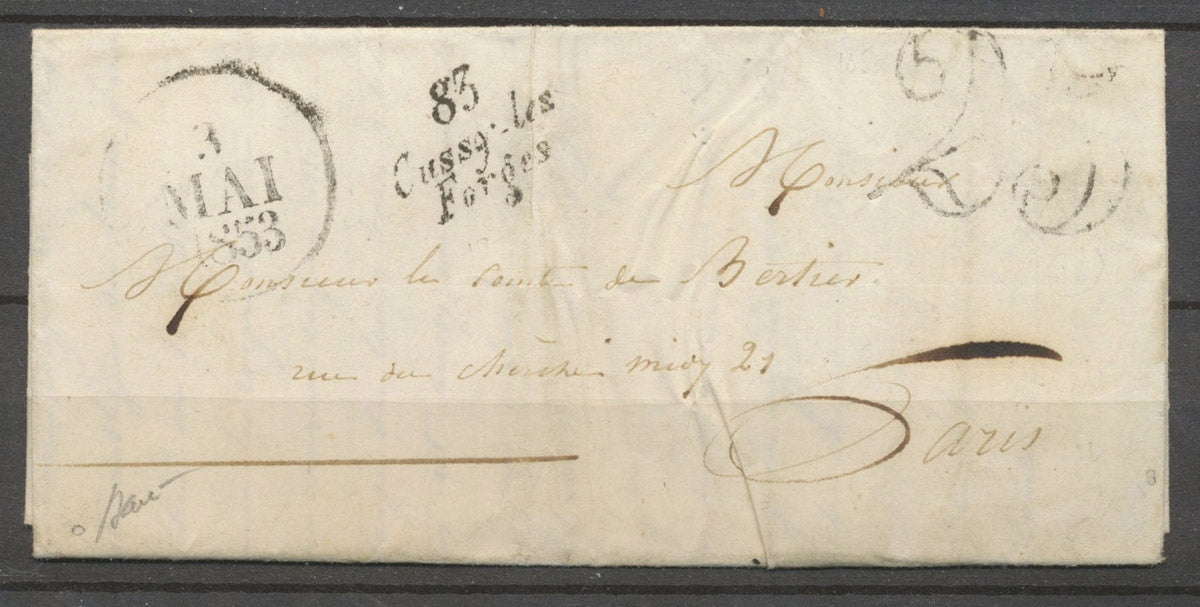 3
MAI
1853
83
Cussy-les
Forges
25
Monsieur
Monsieur le comte de Bertier
rue du cherche midy 21
Paris